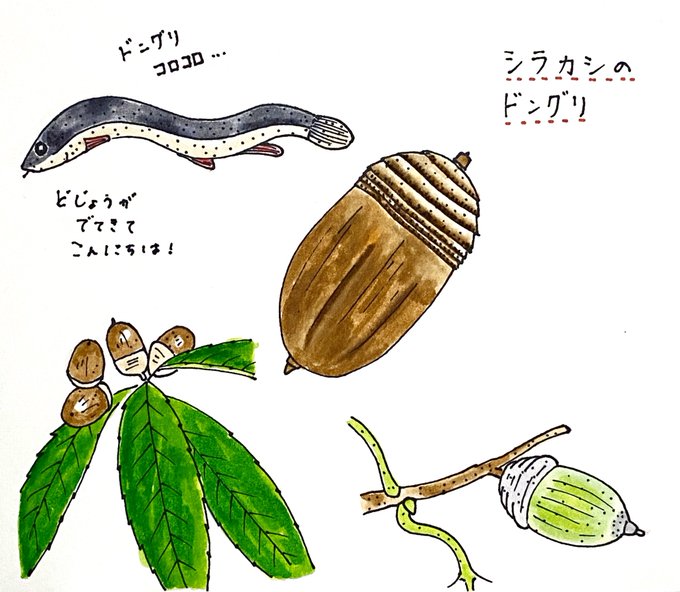 ドングリ
コロコロ…
シラカシの
ドングリ
どじょうが
でてきて
こんにちは!